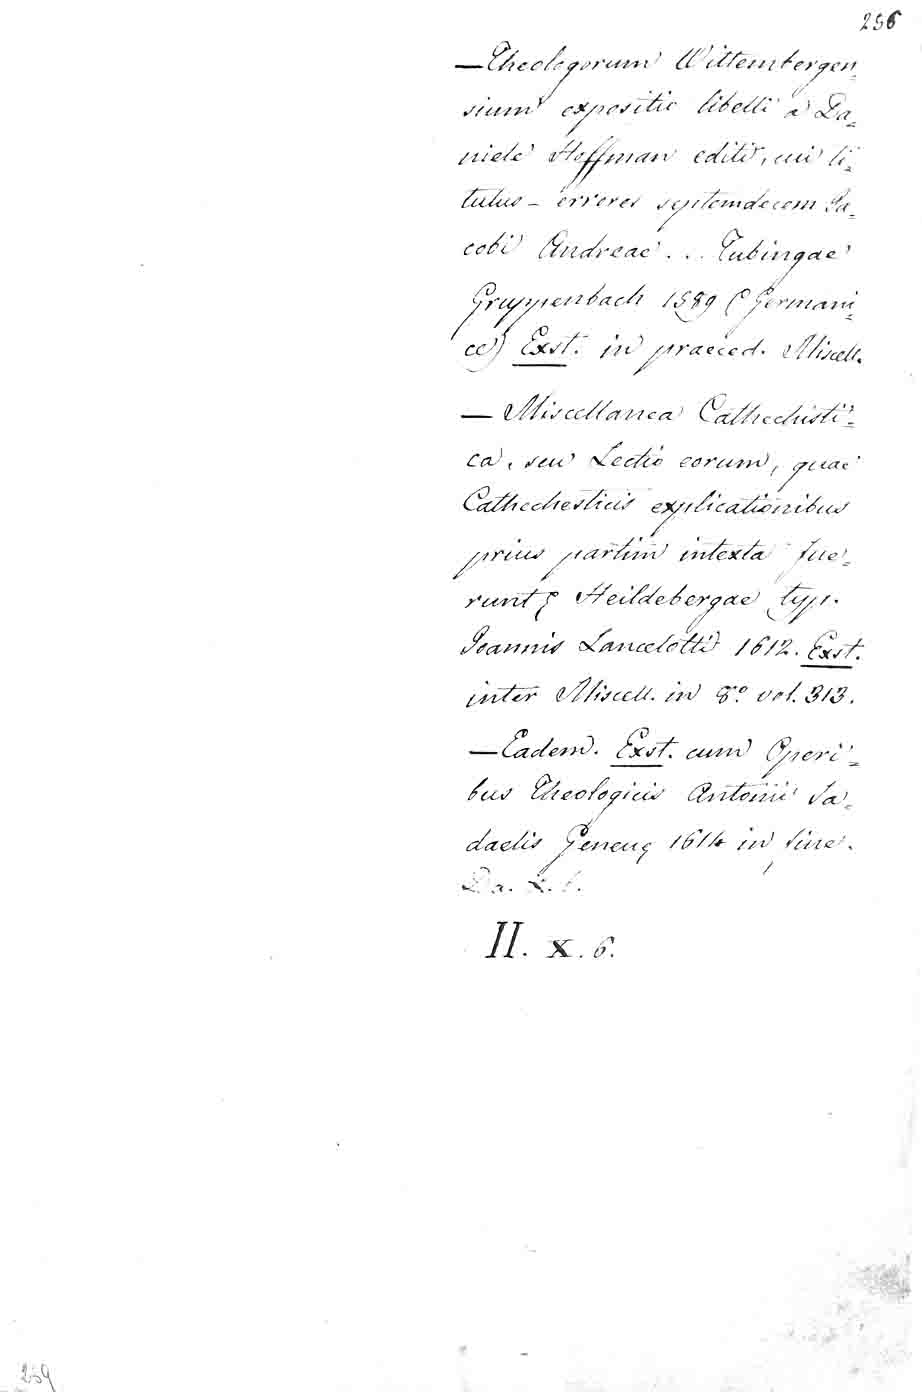 256
— Theologorum Wittembergen=
sium expositio libelli a Da=
niele Hoffman editi, cui ti=
tulus – errores septemdecem Ja=
cobi Andreae . . . Tubingae
Gruppenbach 1589 (Germani=
ce) Exst. in praeced. Miscell.
— Miscellanea Cathechisti=
ca, seu Lectio eorum, quae
Cathechesticis explicationibus
prius partim intexta fue=
runt; Heildebergae typ.
Joannis Lancelotti 1612. Exst.
inter Miscell. in 8.° vol. 313.
— Eadem. Exst. cum Operi=
bus Theologicis Antonii Sa=
daelis Genevę 1614 in fine.
II. x. 6.
259